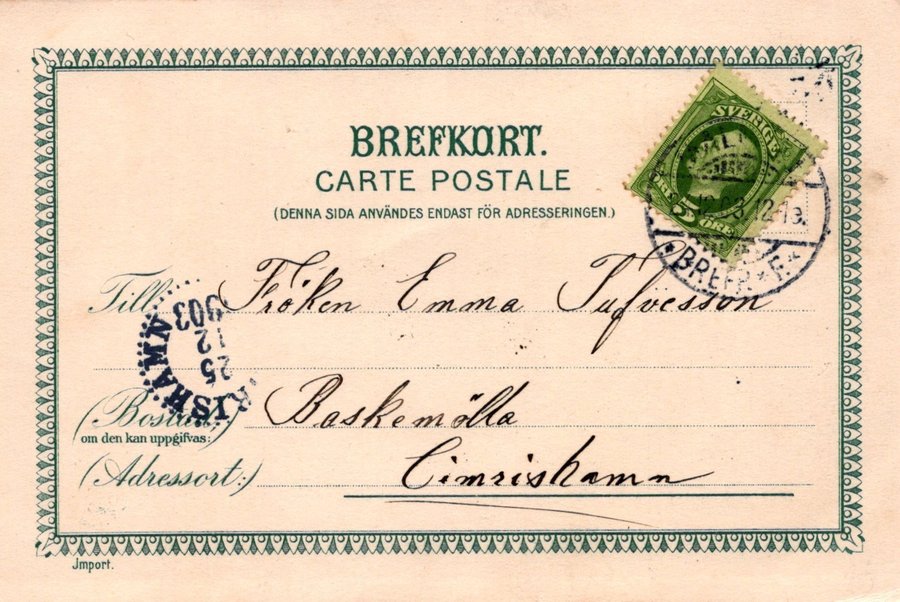 BREFKORT.
CARTE POSTALE
(DENNA SIDA ANVÄNDES ENDAST FÖR ADRESSERINGEN.)
SVERIGE
5 ÖRE
12 03 12-
BREFR
Till Fröken Emma Tufvesson
RISHAMN
25
12
903
(Bostad)
Baskemölla
om den kan uppgifvas:
(Adressort:) Cimrishamn
Jmport.